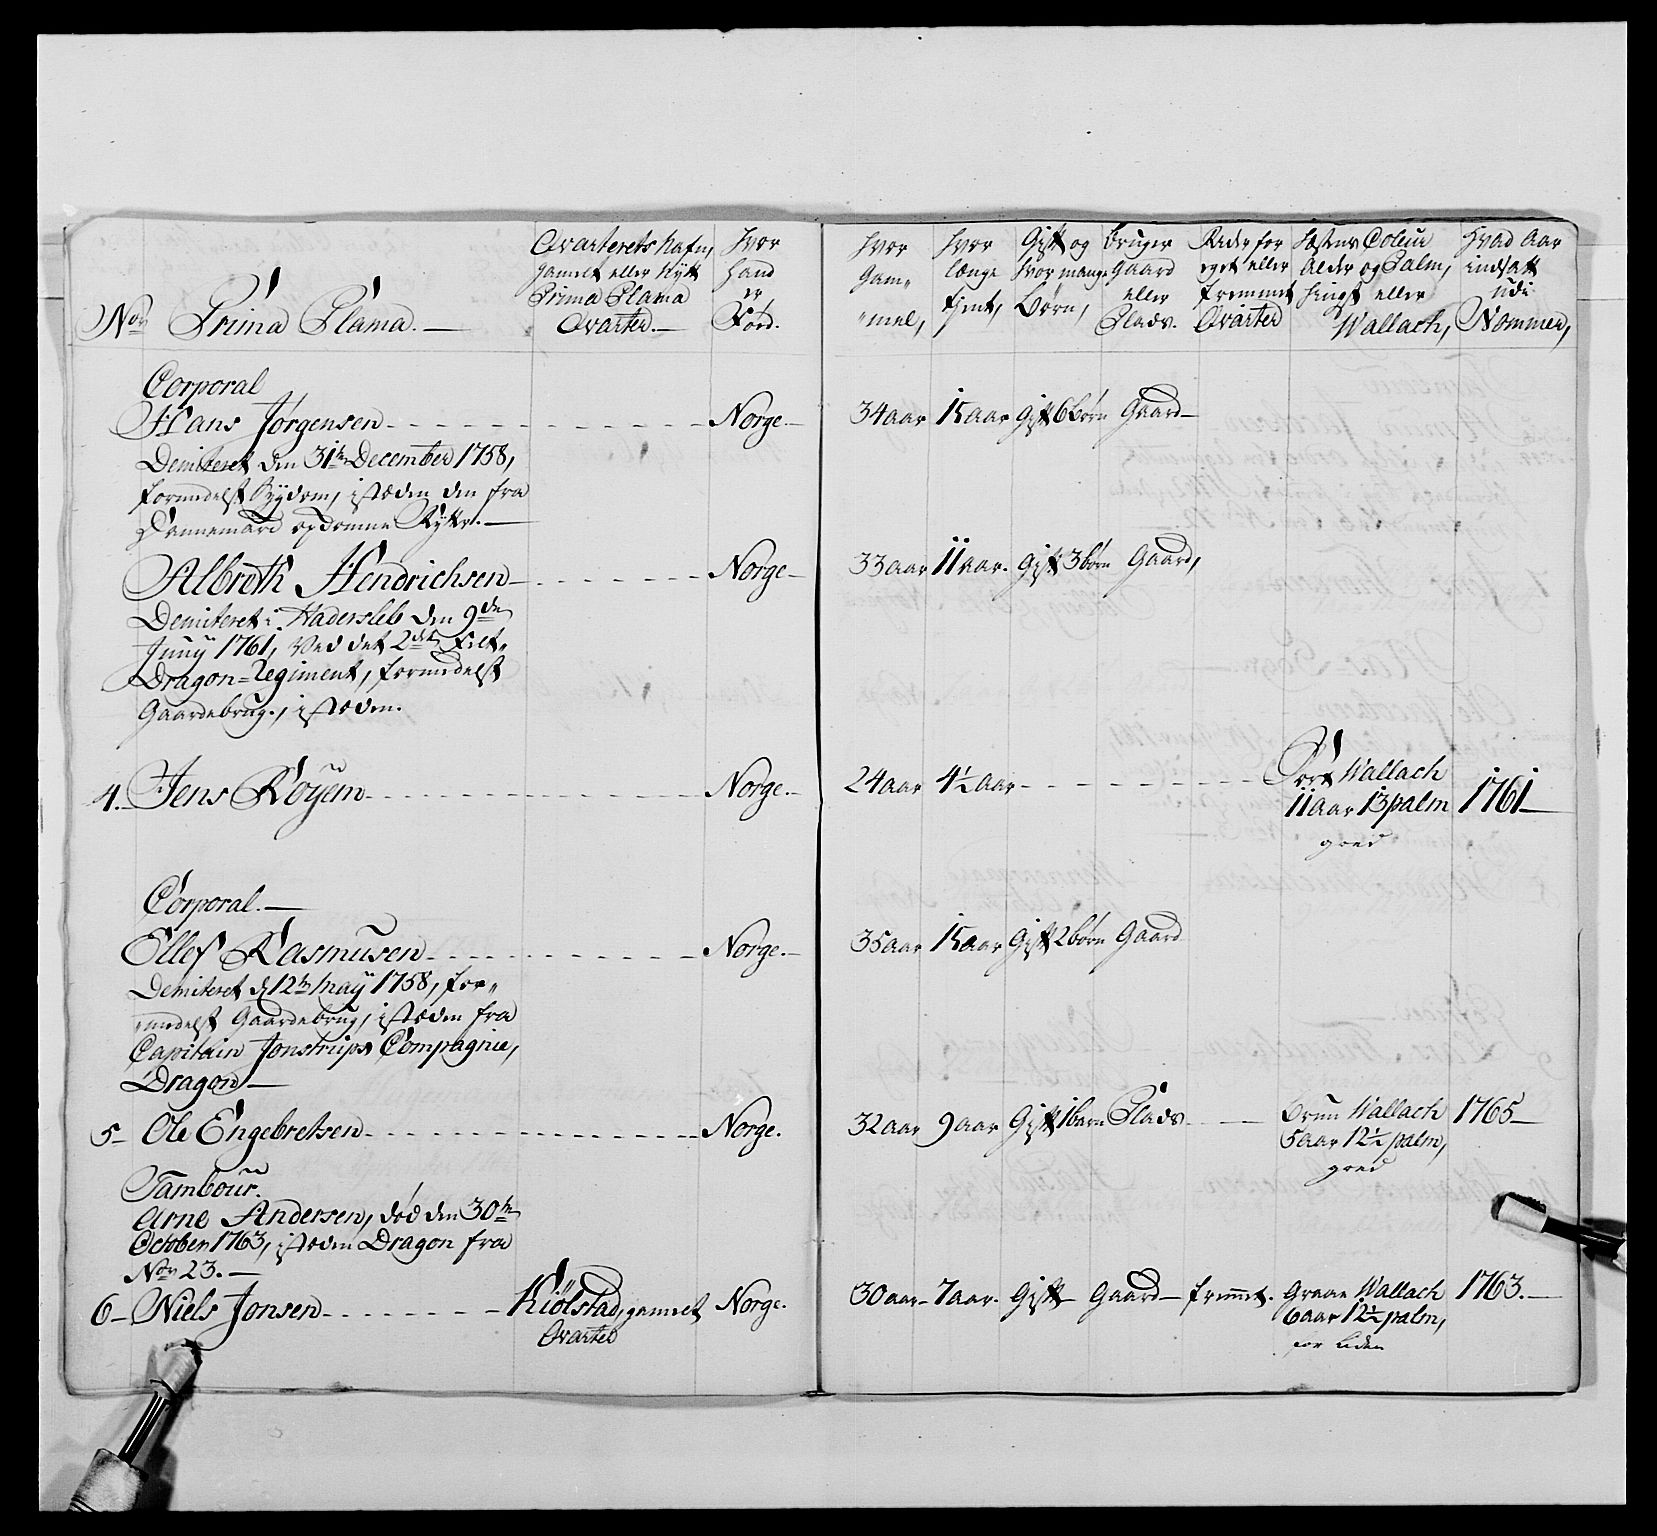 No Prima Plana.
Qvarterets Nafn,
gammelt eller Nytt
Prima Plana
Qvarteer.
Hvor
hand
er
Fød.
Hvor
Gam-
-mel,
Hvor
længe
tient,
Gift og
hvor mange
Børn,
Bruger
Gaard
eller
Plads.
Rider for
eget eller
fremmet
Qvarteer
Hæstens Coleur
Alder og Palm,
hingst eller
Wallach,
Hvad Aar
indsatt
udi
Nommer,
Corporal
Hans Jørgensen Norge 34 aar 15 aar Gift 6 børn Gaard
Demiteret den 31te December 1758,
formedelst Sygdom, istæden den fra
Dannemarc
Albreth Hendrichsen Norge 33 aar 11 aar. Gift 3 børn Gaard,
Demiteret i Hadersleb den 9de
Juny 1761, Ved det 2det
Dragon-Regiment, formedelst
Gaardebrug, istæden.
4. Jens Røyem Norge. 24 aar 4½ aar Sort Wallach
11 aar 13 palm 1761
goed
Corporal.
Ellef Rasmusen Norge. 35 aar 15 aar Gift 2 børn Gaard
Demiteret d 12te May 1758, for-
-medelst Gaardebrug, istæden fra
Capitain Jonstrups Compagnie,
Dragon
5 Ole Engebretsen Norge. 32 aar 9 aar Gift 1 barn Plads brun Wallach 1765
5 aar 12½ palm,
goed
Tambour.
Arne Andersen, død den 30te
October 1763, istæden Dragon fra
No 23.
6 Niels Jonsen Kiölstad, gammelt Norge. 30 aar 7 aar. Gift Gaard fremmet. Graae Wallach 1763.
Qvarteer 6 aar 12½ palm,
for liden